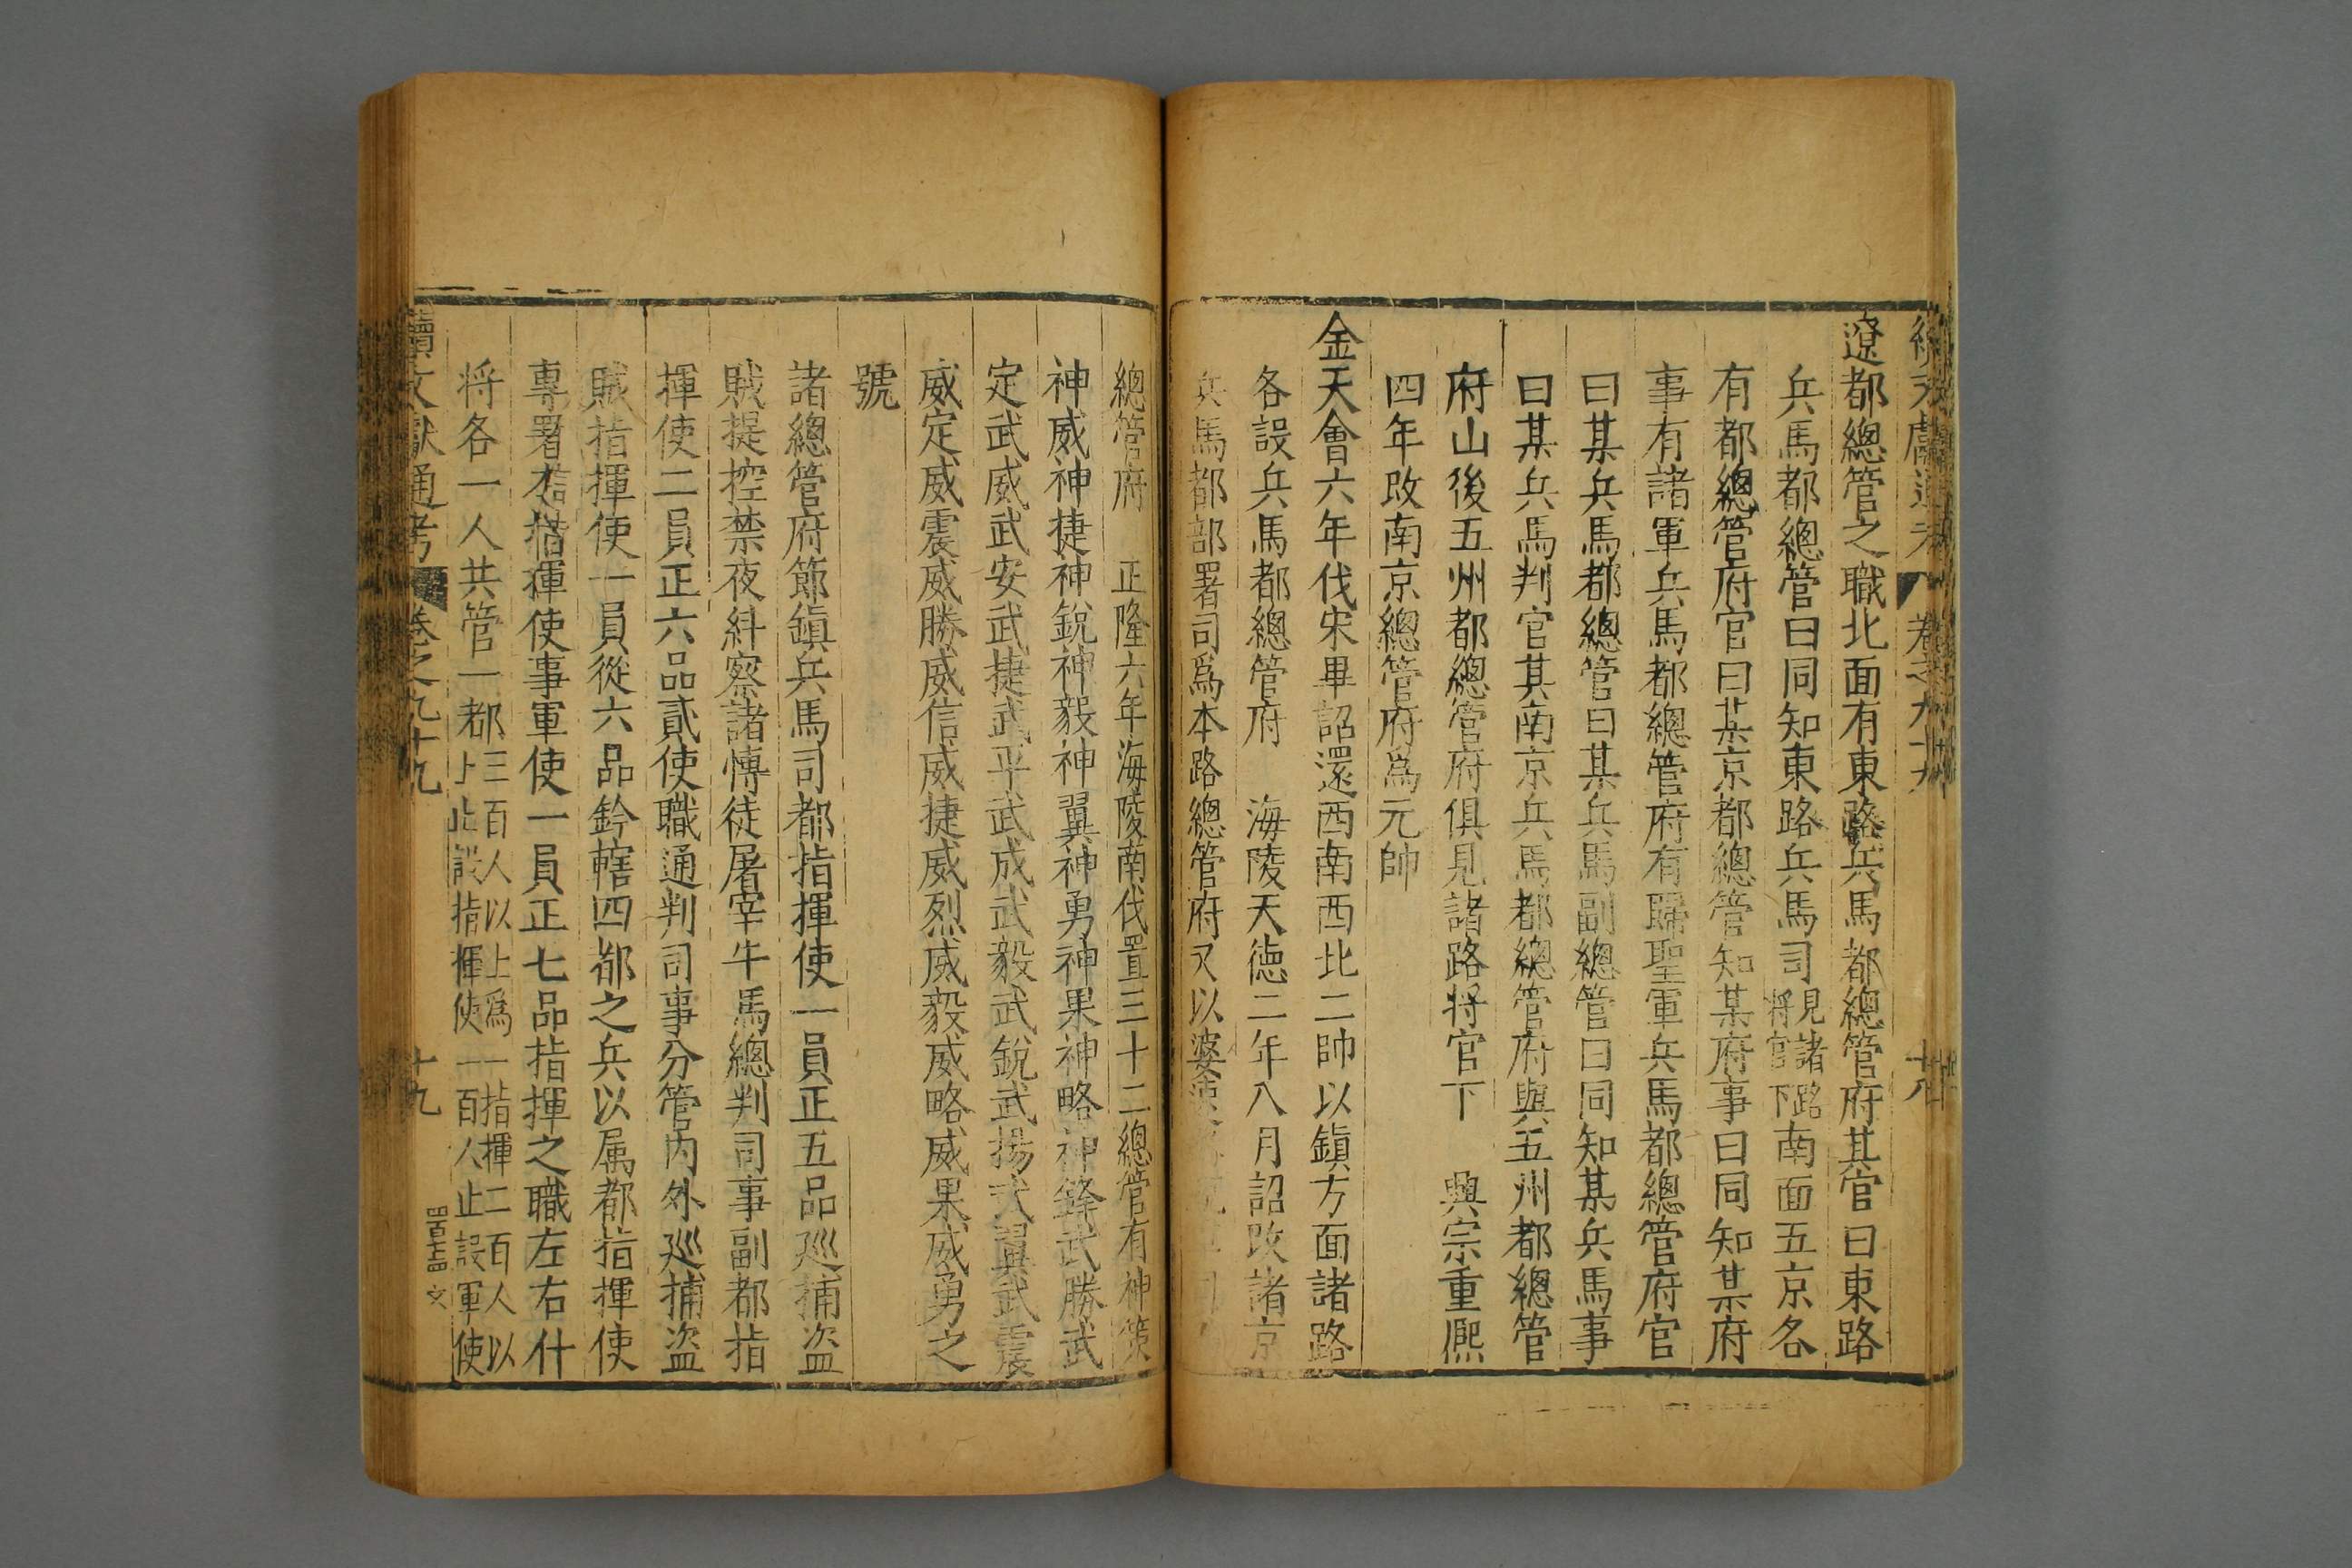 遼都總管之職北面有東路兵馬都總管府其官曰東路
兵馬都總管曰同知東路兵馬司見諸路將官下南面五京各
有都總管府官曰某京都總管知某府事曰同知某府
事有諸軍兵馬都總管府有歸聖軍兵馬都總管府官
曰某兵馬都總管曰某兵馬副總管曰同知某兵馬事
曰某兵馬判官其南京兵馬都總管府與五州都總管
府山後五州都總管府俱見諸路将官下 興宗重熈
四年改南京總管府爲元帥
金天會六年伐宋畢詔還西南西北二帥以鎮方面諸路
各設兵馬都總管府 海陵天德二年八月詔改諸京
兵馬都部署司爲本路總管府又以婆
總管府 正隆六年海陵南伐置三十二總管有神策
神威神捷神銳神毅神翼神勇神果神略神鋒武勝武
定武威武安武捷武平武成武毅武銳武揚武翼武震
威定威震威勝威信威捷威烈威毅威略威果威勇之
號
諸總管府節鎮兵馬司都指揮使一員正五品巡捕盜
賊提控禁夜糾察諸慱徒屠宰牛馬總判司事副都指
揮使二員正六品貳使職通判司事分管内外巡捕盜
賊指揮使一員從六品鈐轄四都之兵以属都指揮使
專署本指揮使事軍使一員正七品指揮之職左右什
将各一人共管一都三百人以上爲一指揮二百人以上止設指揮使一百人止設軍使
續文獻通考 卷之九十九 十九